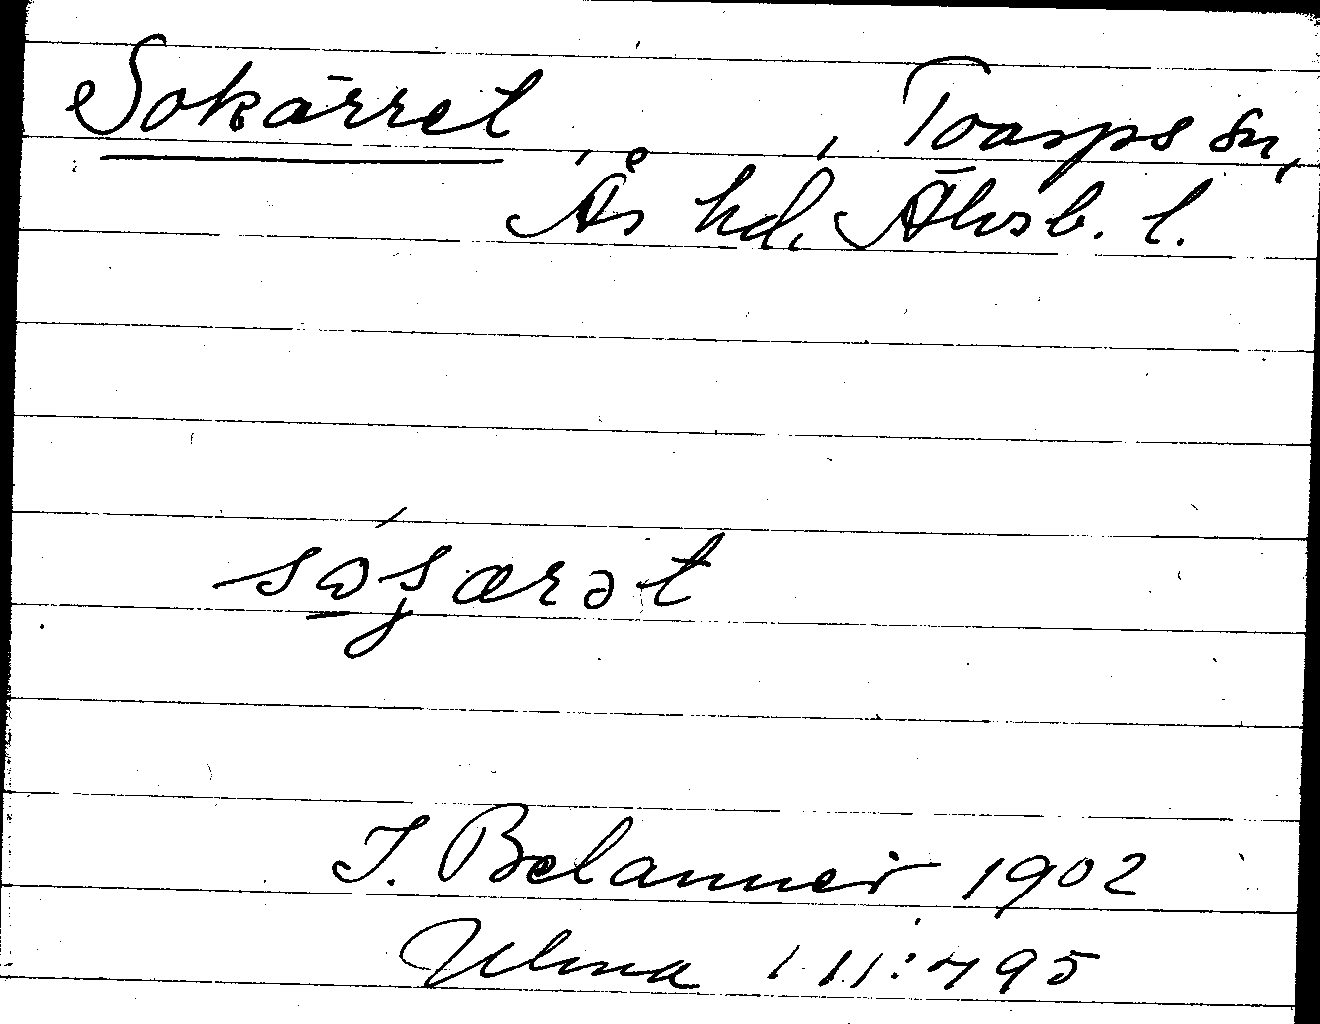 Sokärret, Toarps sn,
Ås hd, Älvsb. l.
J. Belanner 1902
Ulma 111:795